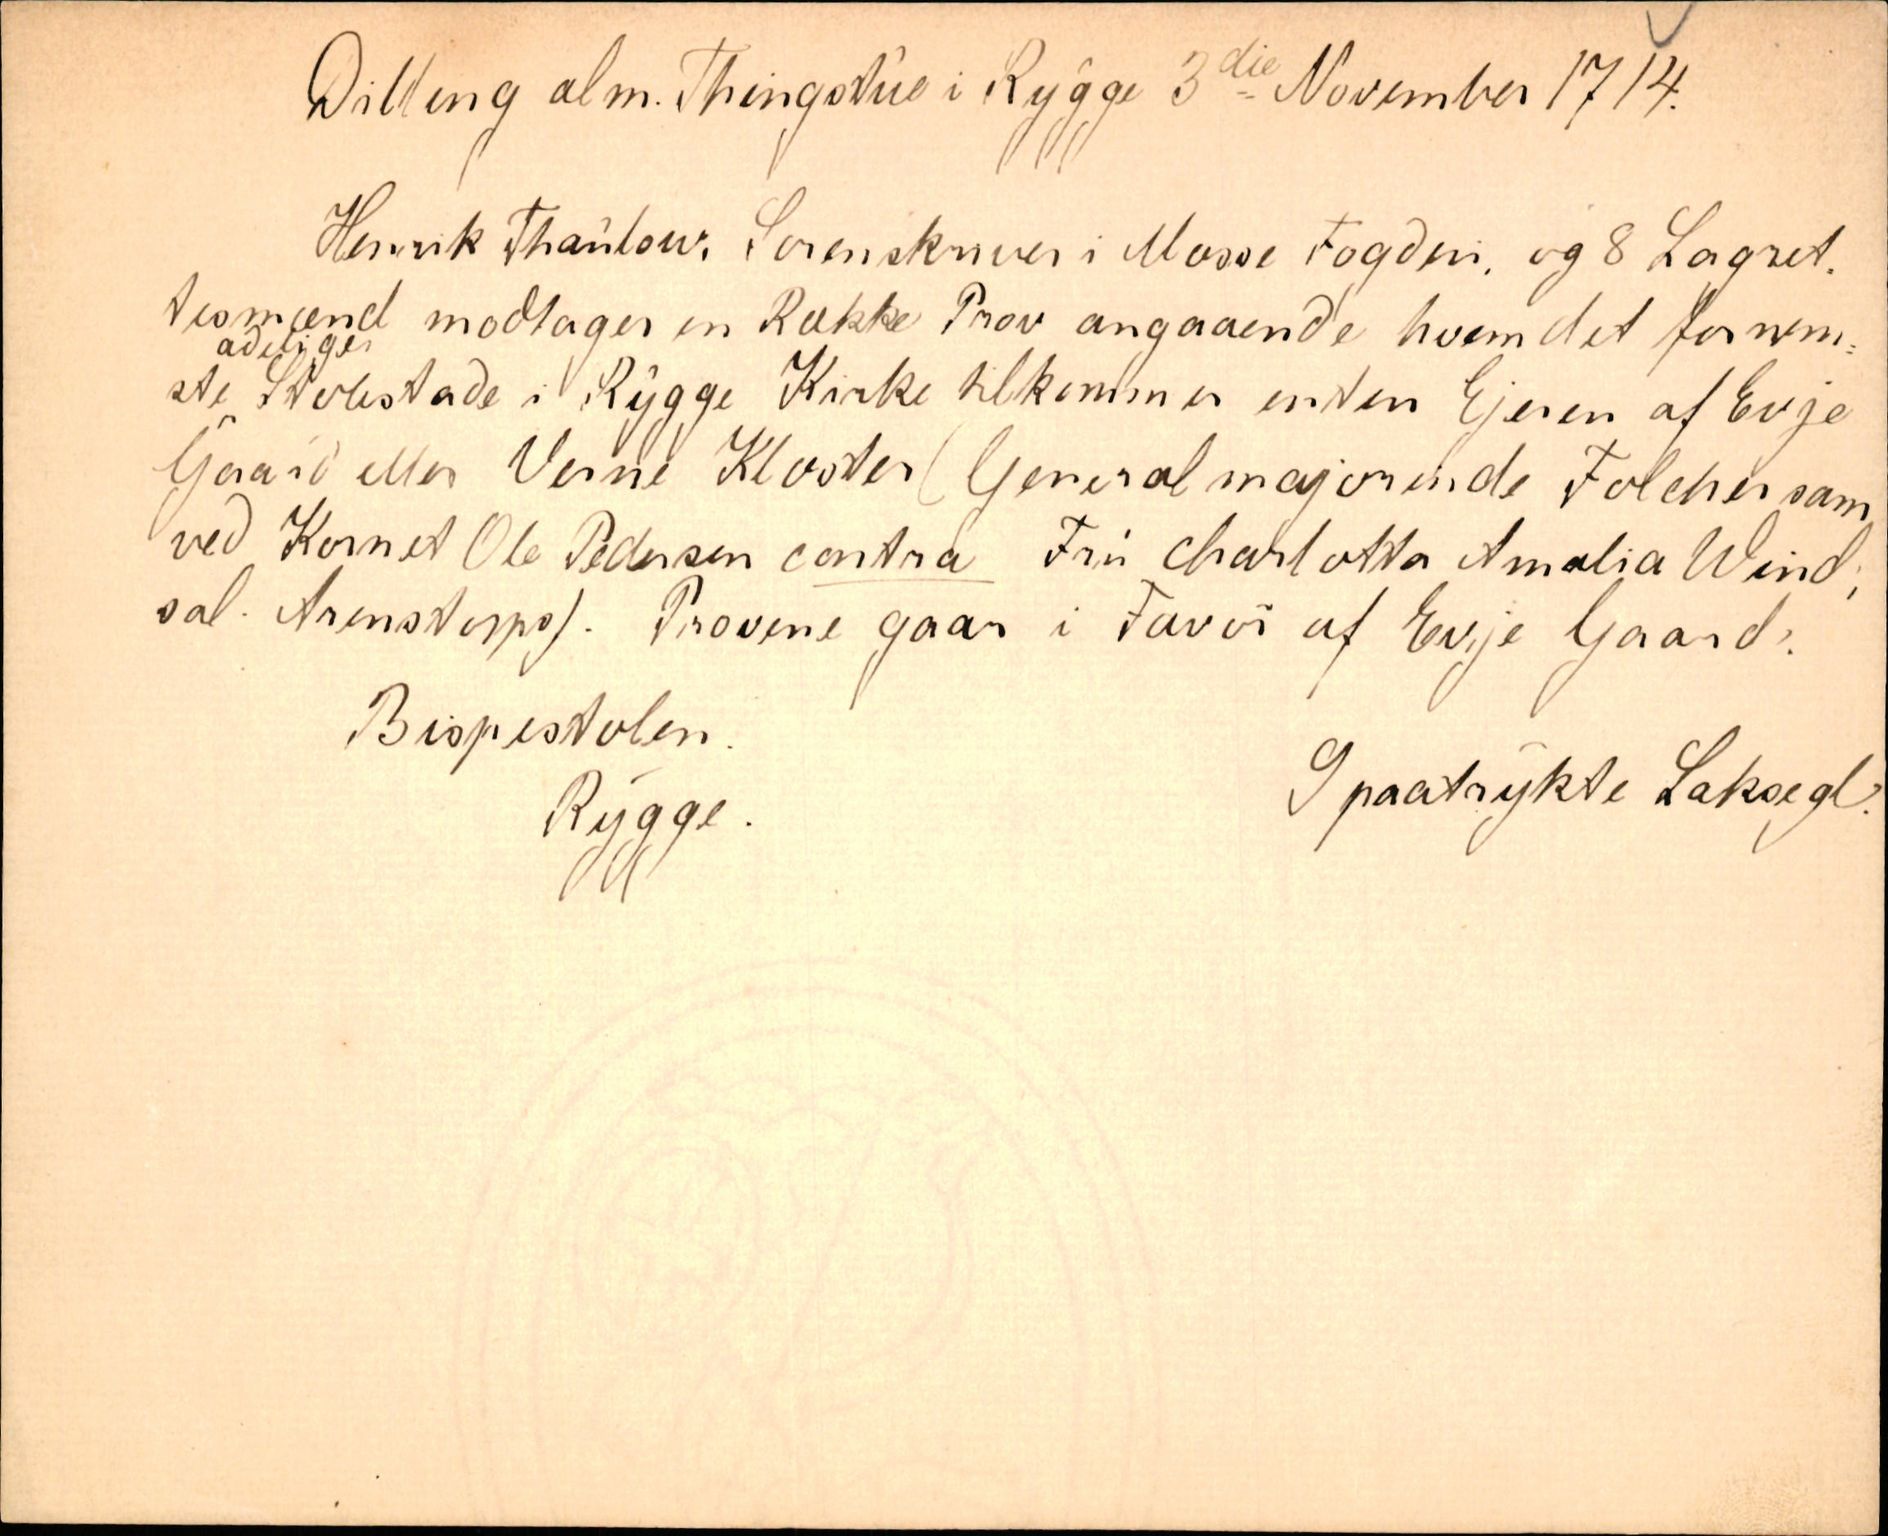 Dilling alm. Thingstue i Rygge 3die November 1714.
Henrik Thaulow, Sorenskriver i Mosse Fogderi, og 8 Lagret-
tesmænd modtager en Række Prov angaaende hvem det fornem-
adelige
ste Stolestade i Rygge Kirke tilkommer enten Ejeren af Evje
Gaard eller Verne Kloster (Generalmajorinde Folchersam
ved Kornet Ole Pedersen contra Fru Charlotta Amalia Wind,
sal. Arenstorps). Provene gaar i Favør af Evje Gaard.
Bispestolen.
Rygge.
9 paatrykte Laksegl.